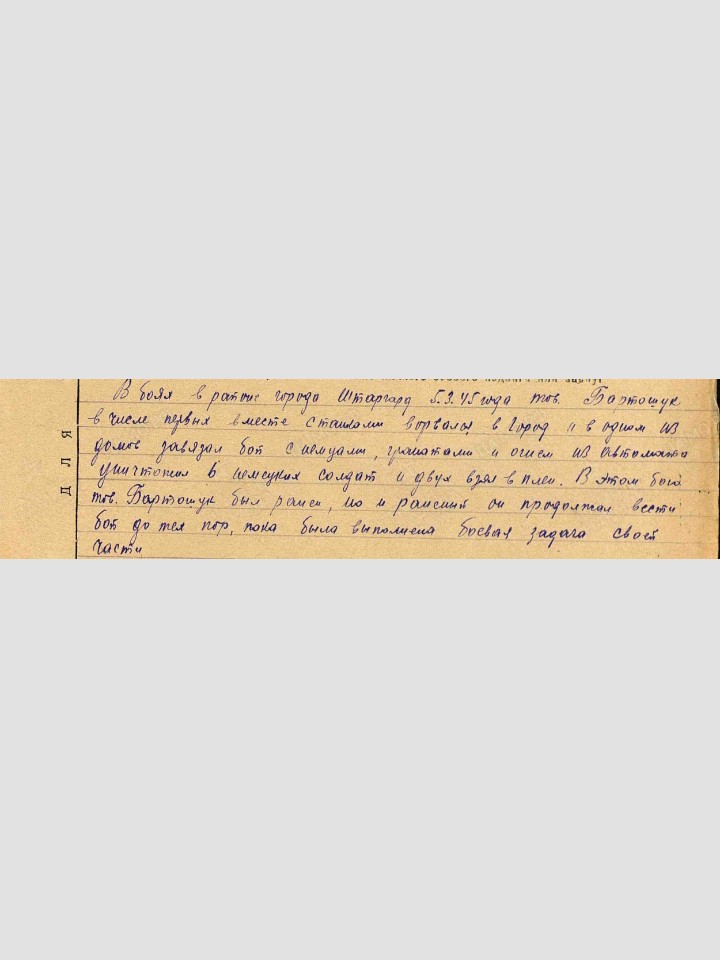 боевого подвига или заслуг
В боях в районе города Штаргард 5.3.45 года тов. Бартощук
в числе первых вместе с танками ворвался в город и в одном из
домов завязал бой с немцами, гранатами и огнем из автомата
уничтожил 6 немецких солдат и двух взял в плен. В этом бою
тов. Бартощук был ранен, но и раненый он продолжал вести
бой до тех пор, пока была выполнена боевая задача своей
части
ДЛЯ